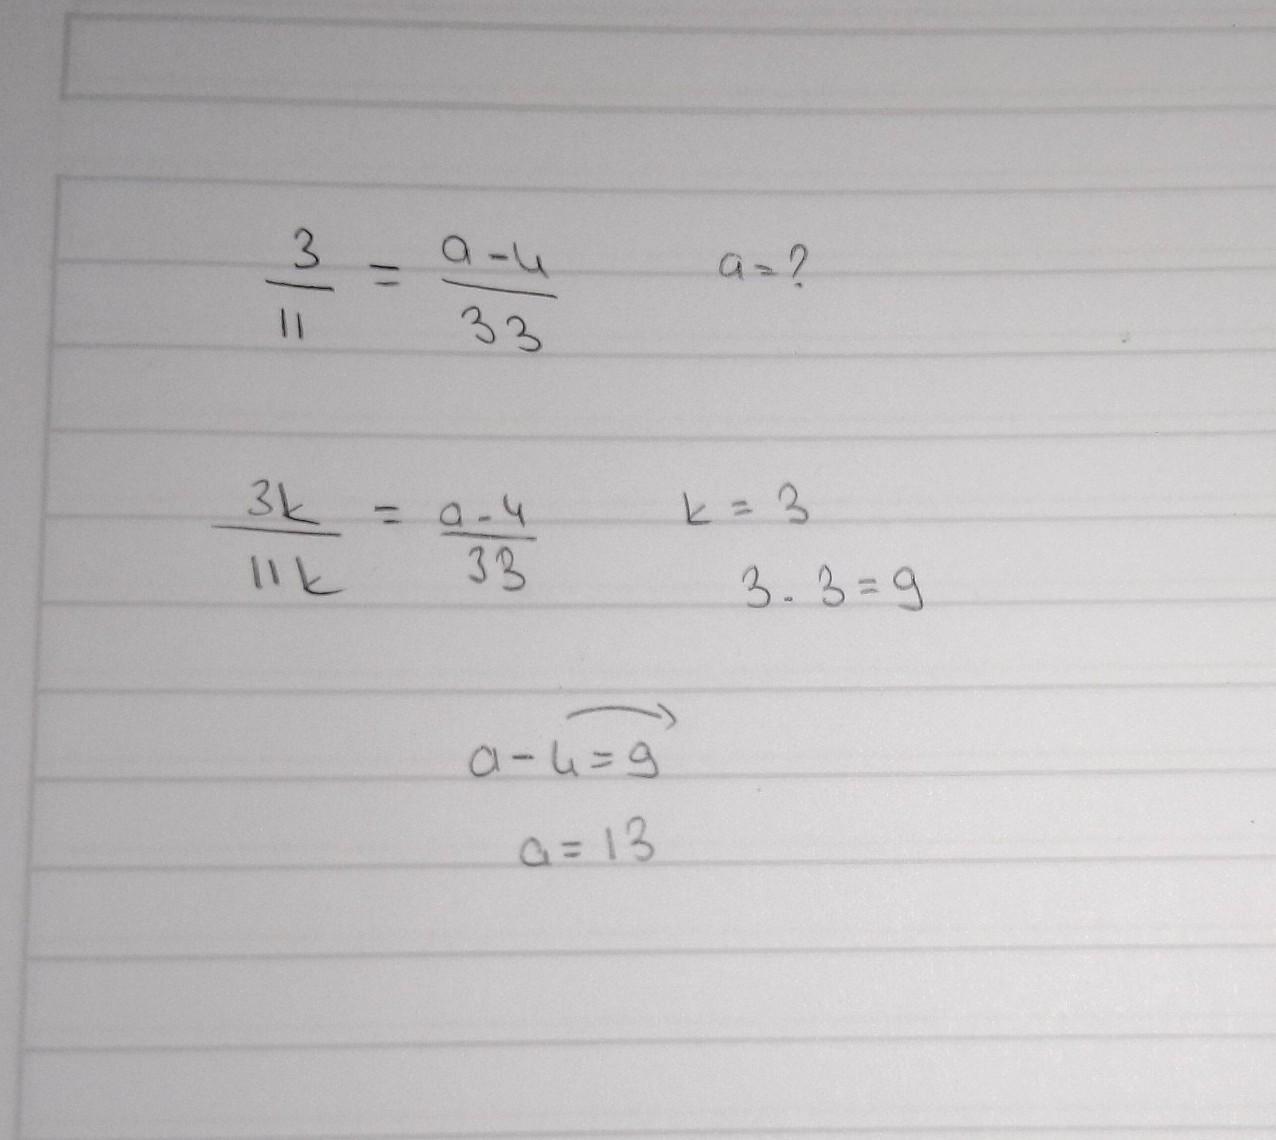 3/11 = a-4/33 a=?
3k/11k = a-4/33 k = 3
3.3=9
a-4=9
a=13